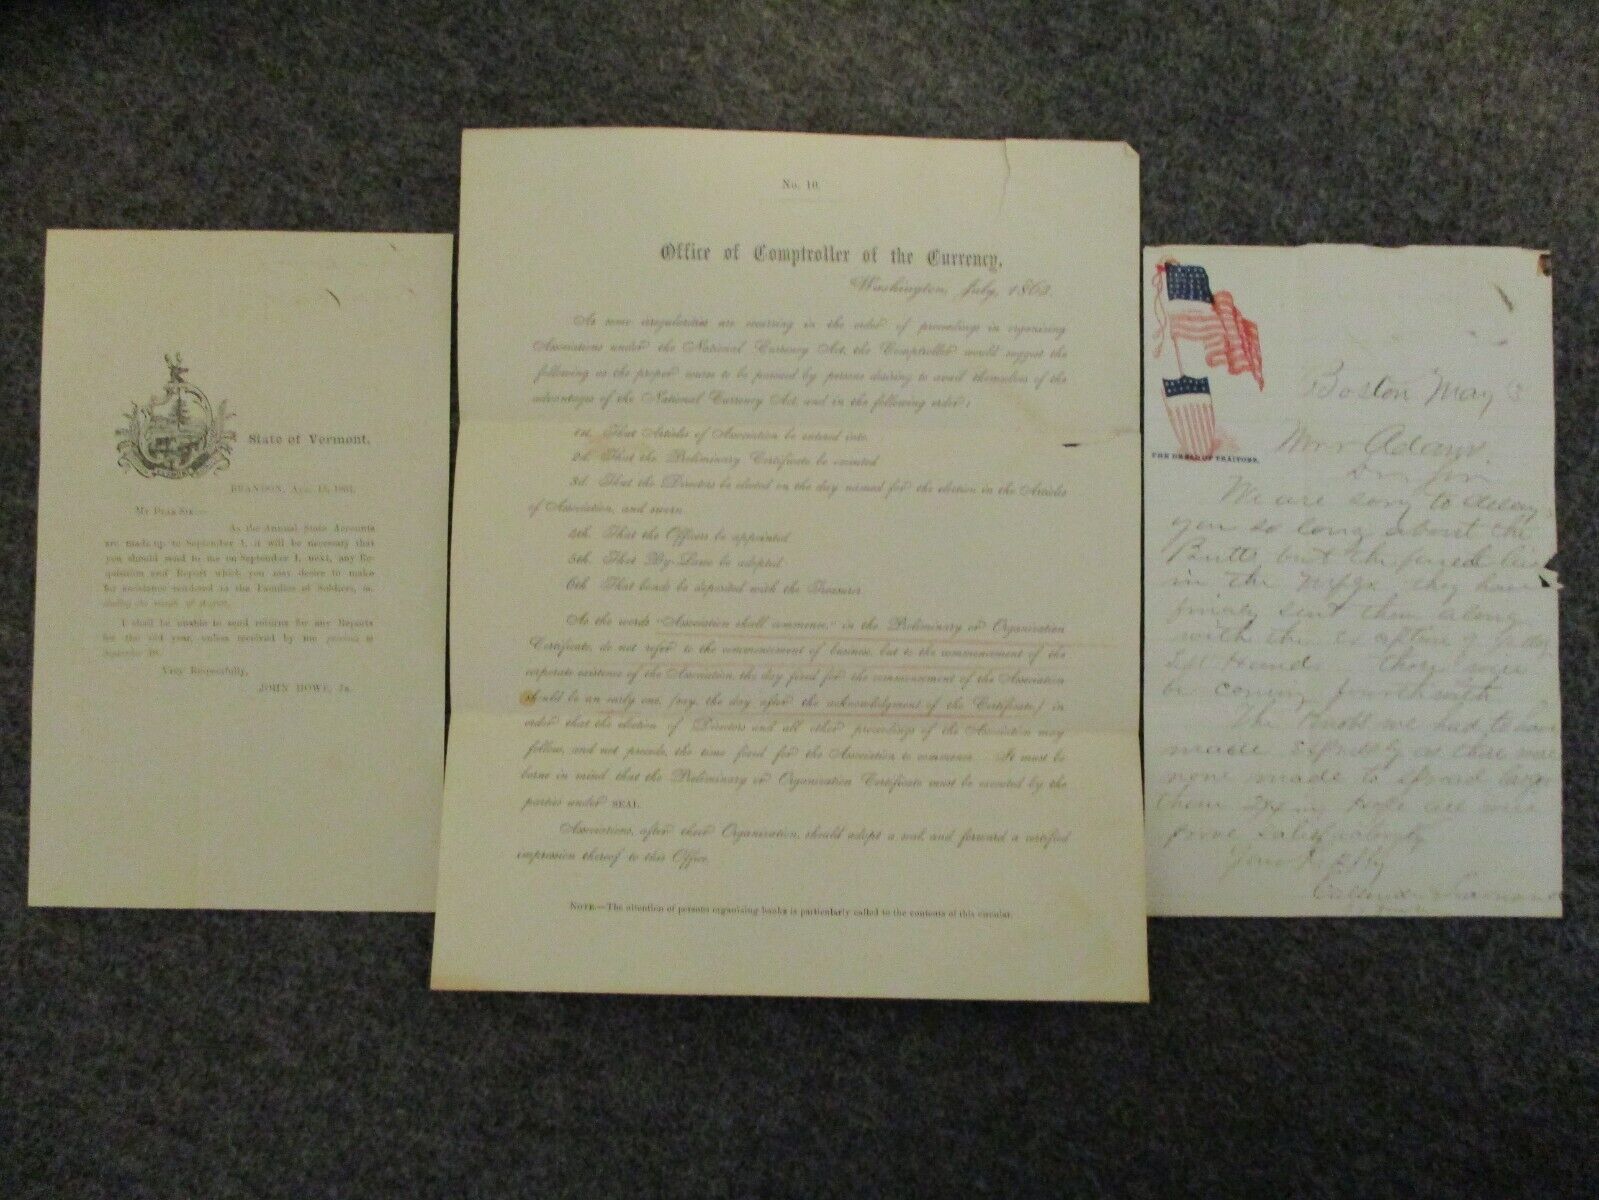 State of Vermont.
BRANDON, AUG. 15, 1863.
MY DEAR SIR—
As the Annual State Accounts
are made up to September 1, it will be necessary that
you should send to me on September 1, next, any Re-
quisition and Report which you may desire to make
for assistance rendered to the Families of Soldiers, in-
cluding the month of August.
I shall be unable to send returns for any Reports
for the old year, unless received by me previous to
September 10.
Very Respectfully,
JOHN HOWE, JR.
No. 10.
Office of Comptroller of the Currency,
Washington, July, 1863.
As some irregularities are occurring in the order of proceedings in organizing
Associations under the National Currency Act, the Comptroller would suggest the
following as the proper course to be pursued by persons desiring to avail themselves of the
advantages of the National Currency Act, and in the following order:
1st. That Articles of Association be entered into.
2d. That the Preliminary Certificate be executed.
3d. That the Directors be elected on the day named for the election in the Articles
of Association, and sworn.
4th. That the Officers be appointed.
5th. That By-Laws be adopted.
6th. That bonds be deposited with the Treasurer.
As the words "Association shall commence," in the Preliminary or Organization
Certificate, do not refer to the commencement of business, but to the commencement of the
corporate existence of the Association, the day fixed for the commencement of the Association
should be an early one, (say, the day after the acknowledgment of the Certificate,) in
order that the election of Directors and all other proceedings of the Association may
follow, and not precede, the time fixed for the Association to commence. It must be
borne in mind that the Preliminary or Organization Certificate must be executed by the
parties under SEAL.
Associations, after their Organization, should adopt a seal, and forward a certified
impression thereof to this Office.
NOTE.—The attention of persons organizing banks is particularly called to the contents of this circular.
THE DREAD OF TRAITORS.
Boston May 3
Mr Adams
Dr Sir
We are sorry to delay
you so long about the
Butts but the
in the they have
finaly sent them along
with the exception of
Hand those will
be coming
The Knobs we had to have
made as there were
none made to
them are will
prove satisfactory
Yours